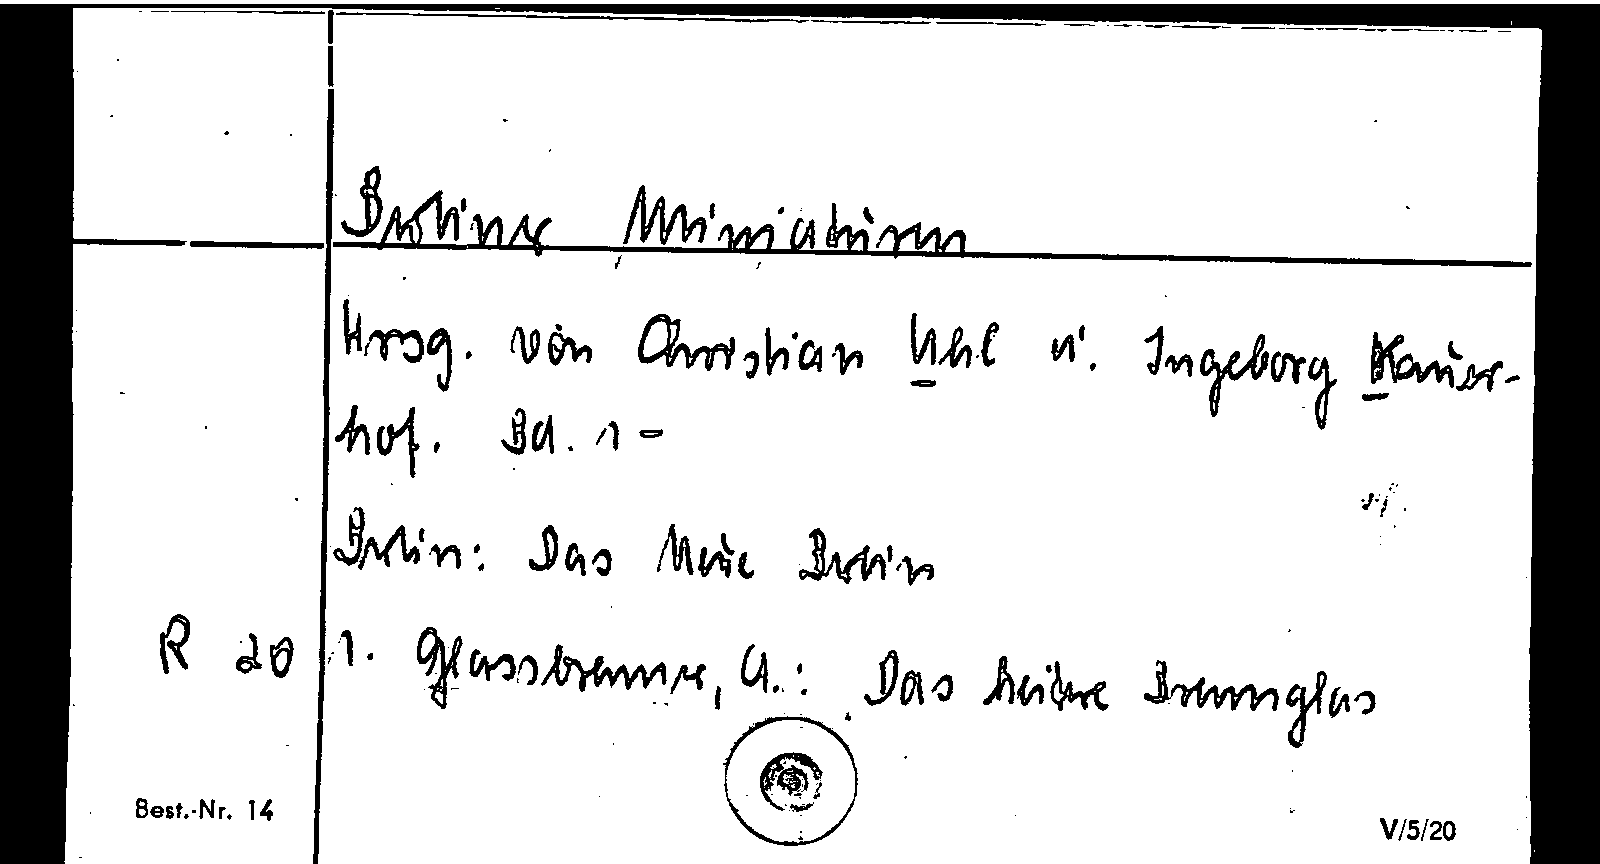 Berliner Miniaturen
Hrsg. von Christian Uhl u. Ingeborg Kauer-
hof. Bd. 1-
Berlin: Das Neue Berlin
R 20 1. Glassbrenner, A.: Das heitere Brennglas
Best.-Nr. 14
V/5/20